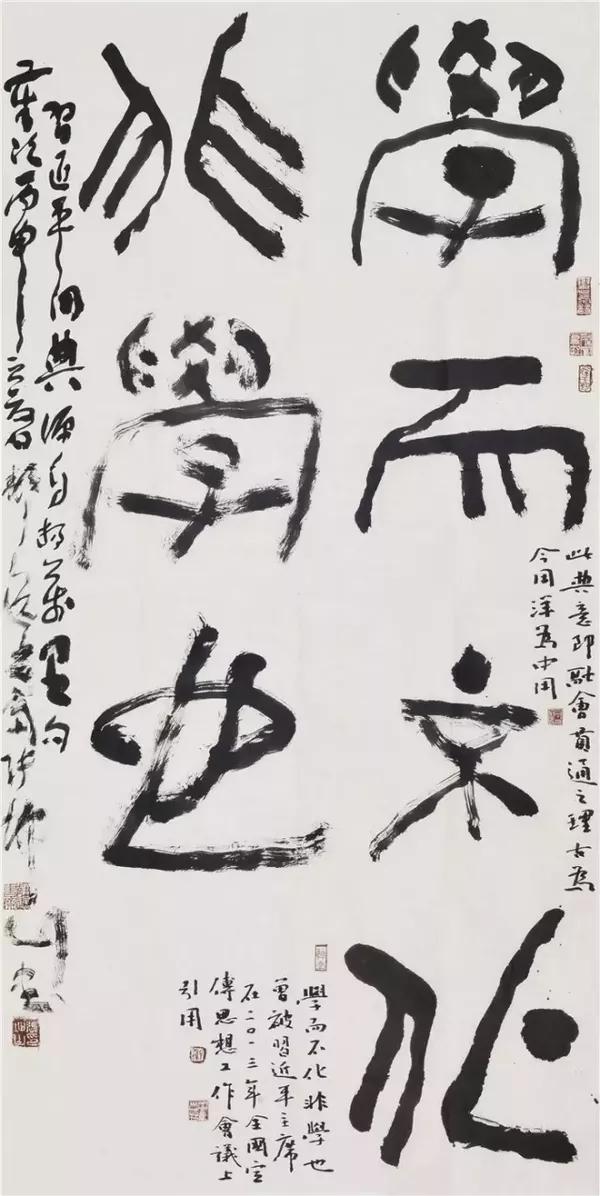 學而不化
非學也
此典意即融會貫通之理古為
今用洋為中用
學而不化非學也
曾被習近平主席
在二〇一三年全國宣
傳思想工作會議上
引用
習近平用典源自楊萬里句
丙申之